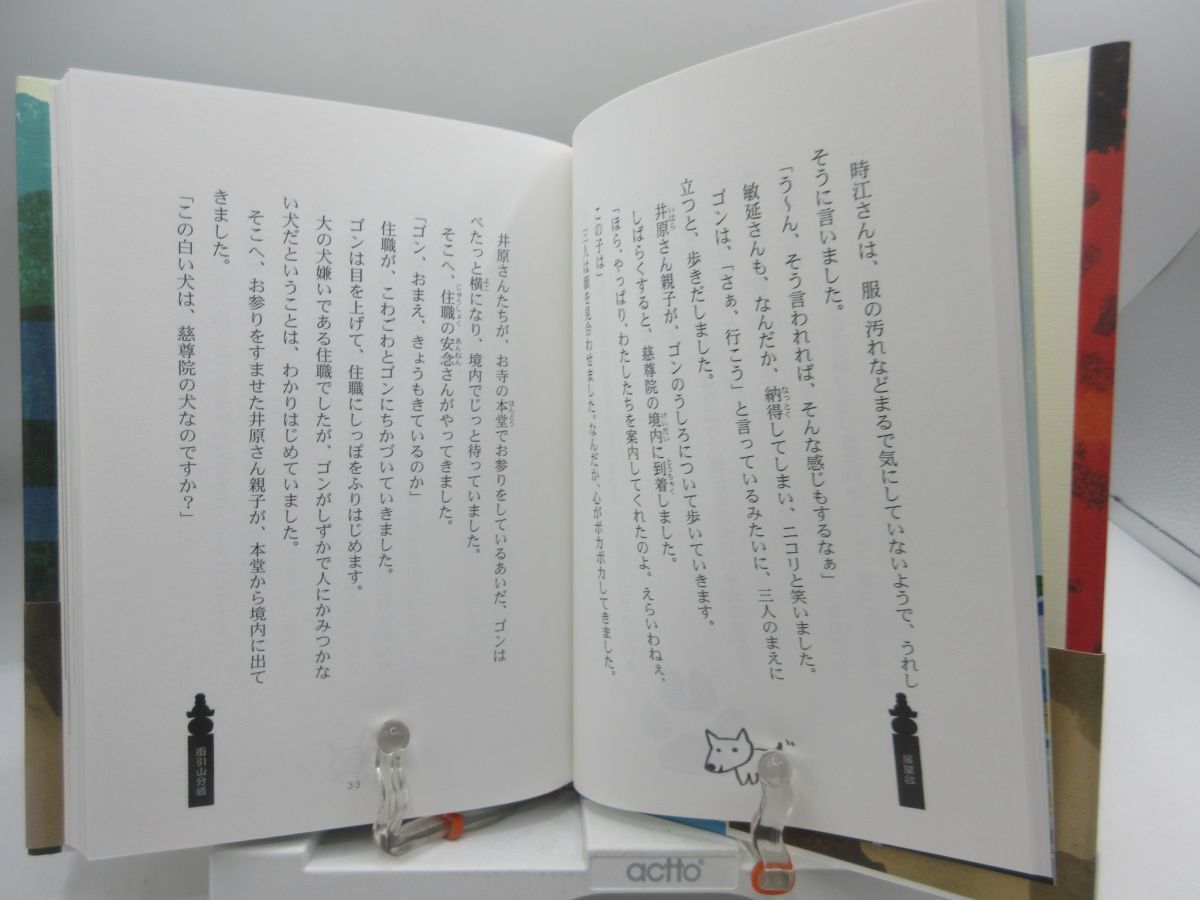 時江さんは、服の汚れなどまるで気にしていないようで、うれし
そうに言いました。
「う〜ん、そう言われれば、そんな感じもするなぁ」
敏延さんも、なんだか、納得してしまい、ニコリと笑いました。
なっとく
ゴンは、「さぁ、行こう」と言っているみたいに、三人のまえに
立つと、歩きだしました。
井原さん親子が、ゴンのうしろについて歩いていきます。
いはら
しばらくすると、慈尊院の境内に到着しました。
けいだい
とうちゃく
「ほら、やっぱり、わたしたちを案内してくれたのよ。えらいわねぇ、
この子は」
三人は顔を見合わせました。なんだか、心がポカポカしてきました。
井原さんたちが、お寺の本堂でお参りをしているあいだ、ゴンは
ほんどう
べたっと横になり、境内でじっと待っていました。
よこ
そこへ、住職の安念さんがやってきました。
じゅうしょく
あんねん
「ゴン、おまえ、きょうもきているのか」
住職が、こわごわとゴンにちかづいていきました。
ゴンは目を上げて、住職にしっぽをふりはじめます。
大の犬嫌いである住職でしたが、ゴンがしずかで人にかみつかな
い犬だということは、わかりはじめていました。
そこへ、お参りをすませた井原さん親子が、本堂から境内に出て
きました。
「この白い犬は、慈尊院の犬なのですか?」
雨引山分岐
33
actto